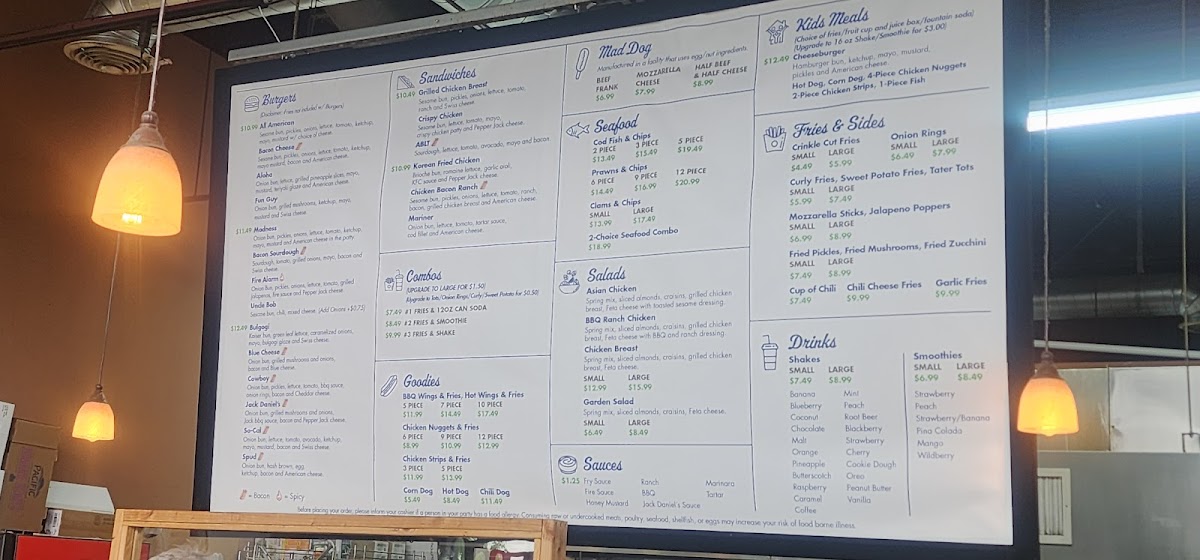 Burgers
(Disclaimer: Fries not included w/ Burgers)
$10.99 All American
Sesame bun, pickles, onions, lettuce, tomato, ketchup,
mayo, mustard w/ choice of cheese.
Bacon Cheese
Sesame bun, pickles, onions, lettuce, tomato, ketchup,
mayo, mustard, bacon and American cheese.
Aloha
Onion bun, lettuce, grilled pineapple slaw, mayo,
mustard, teriyaki glaze and American cheese.
Fun Guy
Onion bun, grilled mushrooms, ketchup, mayo,
mustard and Swiss cheese.
$11.49 Madness
Onion bun, pickles, onions, lettuce, tomato, ketchup,
mayo, mustard and American cheese in the patty
Bacon Sourdough
Sourdough, tomato, grilled onions, mayo, bacon and
Swiss cheese.
Fire Alarm
Onion bun, pickles, onions, lettuce, tomato, grilled
jalapenos, fire sauce and Pepper Jack cheese.
Uncle Bob
Sesame bun, chili, mixed cheese. (Add Onions +$0.75)
$12.49 Bulgogi
Kaiser bun, green leaf lettuce, caramelized onions,
mayo, bulgogi glaze and Swiss cheese.
Blue Cheese
Onion bun, grilled mushrooms and onions,
bacon and Blue cheese.
Cowboy
Onion bun, pickles, lettuce, tomato, bbq sauce,
onion rings, bacon and Cheddar cheese.
Jack Daniel's
Onion bun, grilled mushrooms and onions,
Jack bbq sauce, bacon and Pepper Jack cheese.
So-Cal
Onion bun, lettuce, tomato, avocado, ketchup,
mayo, mustard, bacon and Swiss cheese.
Spud
Onion bun, hash brown, egg,
ketchup, bacon and American cheese.
= Bacon = Spicy
Sandwiches
$10.49 Grilled Chicken Breast
Sesame bun, pickles, onions, lettuce, tomato,
ranch and Swiss cheese
Crispy Chicken
Sesame bun, lettuce, tomato, mayo,
crispy chicken patty and Pepper Jack cheese.
ABLT
Sourdough, lettuce, tomato, avocado, mayo and bacon
$10.99 Korean Fried Chicken
Brioche bun, romaine lettuce, garlic aioli,
KFC sauce and Pepper Jack cheese.
Chicken Bacon Ranch
Sesame bun, pickles, onions, lettuce, tomato, ranch,
bacon, grilled chicken breast and American cheese.
Mariner
Onion bun, lettuce, tomato, tartar sauce,
cod fillet and American cheese.
Combos
(UPGRADE TO LARGE FOR $1.50)
(Upgrade to Tots/Onion Rings/Curly/Sweet Potato for $0.50)
$7.49 #1 FRIES & 12OZ CAN SODA
$8.49 #2 FRIES & SMOOTHIE
$9.99 #3 FRIES & SHAKE
Goodies
BBQ Wings & Fries, Hot Wings & Fries
5 PIECE 7 PIECE 10 PIECE
$11.99 $14.49 $17.49
Chicken Nuggets & Fries
6 PIECE 9 PIECE 12 PIECE
$8.99 $10.99 $12.99
Chicken Strips & Fries
3 PIECE 5 PIECE
$11.99 $13.99
Corn Dog Hot Dog Chili Dog
$5.49 $8.49 $11.49
Mad Dog
Manufactured in a facility that uses egg/nut ingredients.
BEEF FRANK MOZZARELLA CHEESE HALF BEEF & HALF CHEESE
$6.99 $7.99 $8.99
Seafood
Cod Fish & Chips
2 PIECE 3 PIECE 5 PIECE
$13.49 $15.49 $19.49
Prawns & Chips
6 PIECE 9 PIECE 12 PIECE
$14.49 $16.99 $20.99
Clams & Chips
SMALL LARGE
$13.99 $17.49
2-Choice Seafood Combo
$18.99
Salads
Asian Chicken
Spring mix, sliced almonds, craisins, grilled chicken
breast, Feta cheese with toasted sesame dressing.
BBQ Ranch Chicken
Spring mix, sliced almonds, craisins, grilled chicken
breast, Feta cheese with BBQ and ranch dressing.
Chicken Breast
Spring mix, sliced almonds, craisins, grilled chicken
breast, Feta cheese
SMALL LARGE
$12.99 $15.99
Garden Salad
Spring mix, sliced almonds, craisins, Feta cheese.
SMALL LARGE
$6.49 $8.49
Sauces
$1.25 Fry Sauce Ranch Marinara
Fire Sauce BBQ Tartar
Honey Mustard Jack Daniel's Sauce
Kids Meals
(Choice of fries/fruit cup and juice box/fountain soda)
(Upgrade to 16 oz Shake/Smoothie for $3.00)
$12.49 Cheeseburger
Hamburger bun, ketchup, mayo, mustard,
pickles and American cheese.
Hot Dog, Corn Dog, 4-Piece Chicken Nuggets
2-Piece Chicken Strips, 1-Piece Fish
Fries & Sides
Crinkle Cut Fries Onion Rings
SMALL LARGE SMALL LARGE
$4.49 $5.99 $6.49 $7.99
Curly Fries, Sweet Potato Fries, Tater Tots
SMALL LARGE
$5.99 $7.49
Mozzarella Sticks, Jalapeno Poppers
SMALL LARGE
$6.99 $8.99
Fried Pickles, Fried Mushrooms, Fried Zucchini
SMALL LARGE
$7.49 $8.99
Cup of Chili Chili Cheese Fries Garlic Fries
$7.49 $9.99 $9.99
Drinks
Shakes
SMALL LARGE
$7.49 $8.99
Banana Mint
Blueberry Peach
Coconut Root Beer
Chocolate Blackberry
Malt Strawberry
Orange Cherry
Pineapple Cookie Dough
Butterscotch Oreo
Raspberry Peanut Butter
Caramel Vanilla
Coffee
Smoothies
SMALL LARGE
$6.99 $8.49
Strawberry
Peach
Strawberry/Banana
Pina Colada
Mango
Wildberry
Before placing your order, please inform your cashier if a person in your party has a food allergy. Consuming raw or undercooked meats, poultry, seafood, shellfish, or eggs may increase your risk of food borne illness.
PACIFIC